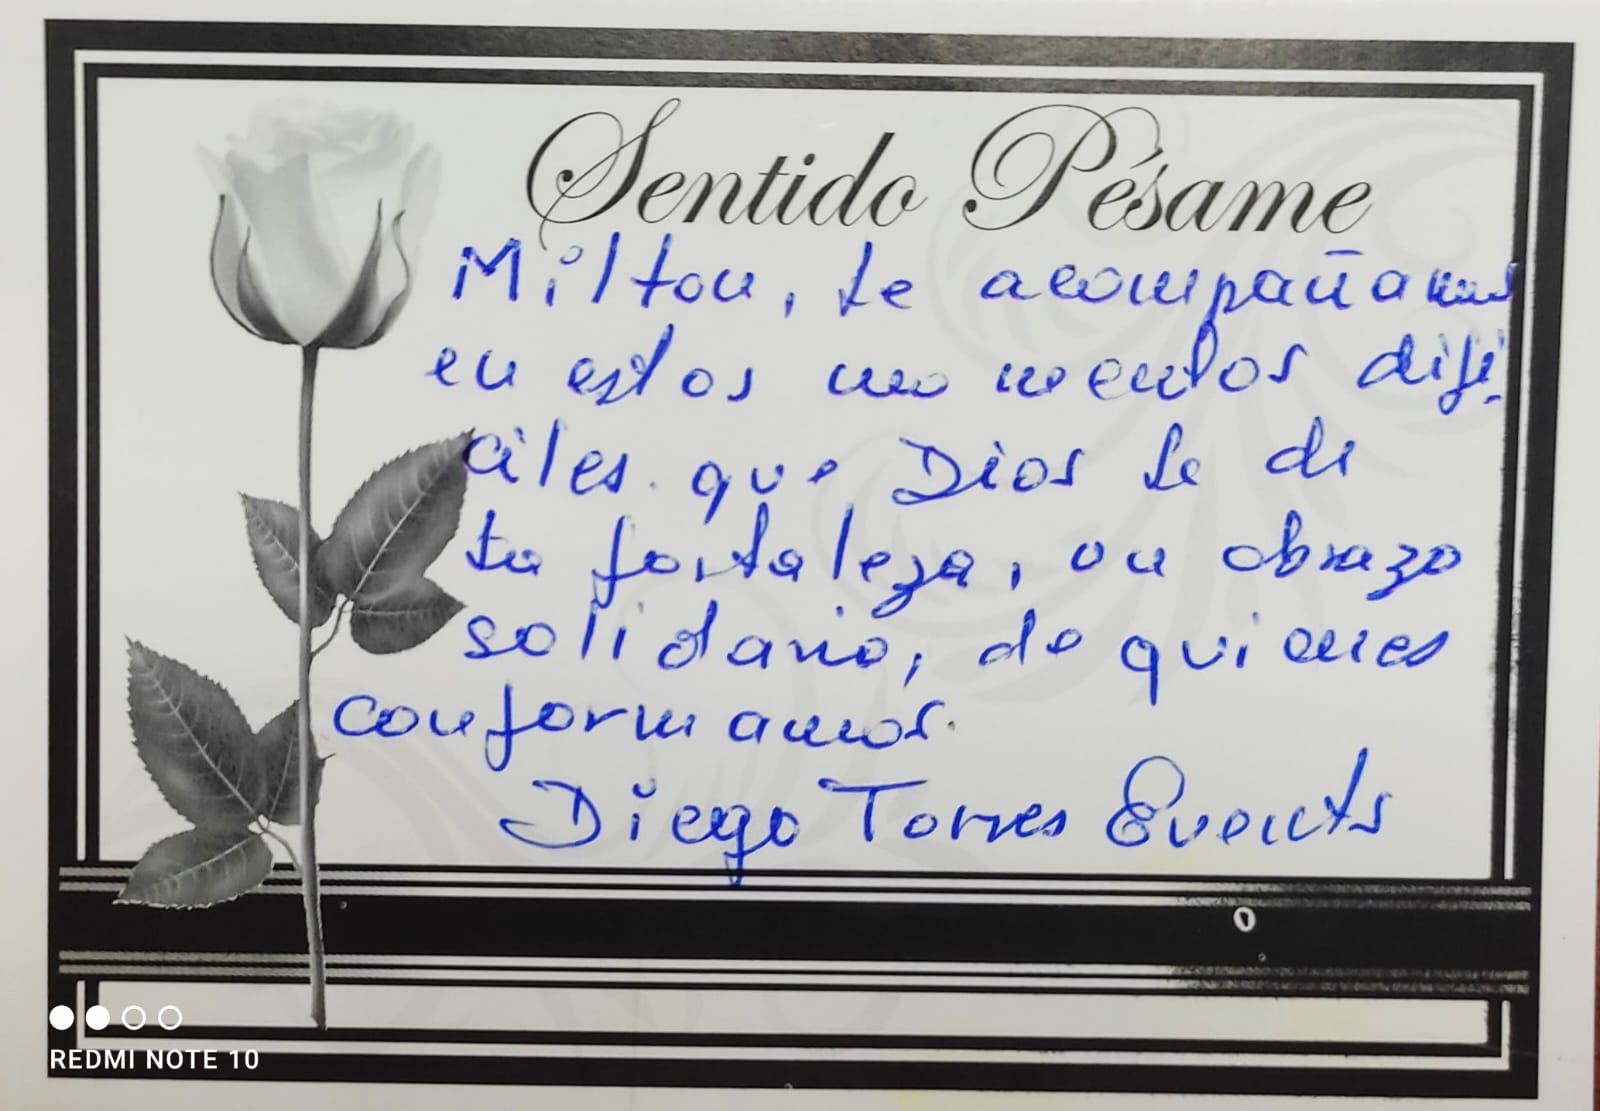 Sentido Pésame
Milton, te acompañamos
en estos momentos difí
ciles. que Dios te de
la fortaleza, un abrazo
solidario, de quienes
conformamos.
Diego Torres Events
REDMI NOTE 10